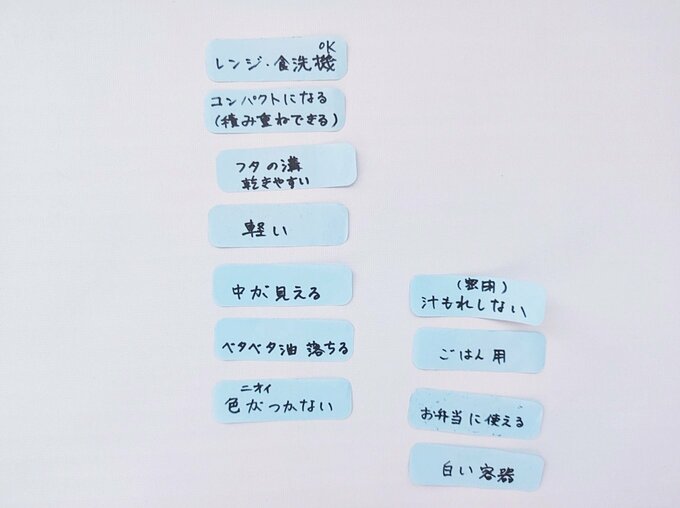 OK
レンジ・食洗機
コンパクトになる
(積み重ねできる)
フタの溝
乾きやすい
軽い
中が見える
ベタベタ油 落ちる
ニオイ
色がつかない
(密閉)
汁もれしない
ごはん用
お弁当に使える
白い容器